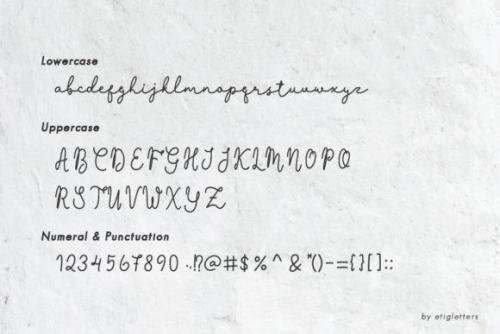 Lowercase
abcdefghijklmnopqrstuvwxyz
Uppercase
ABCDEFGHIJKLMNOPQ
RSTUVWXYZ
Numeral & Punctuation
1234567890 .,!?@#$%^&"()-={}[]:;
by etigletters